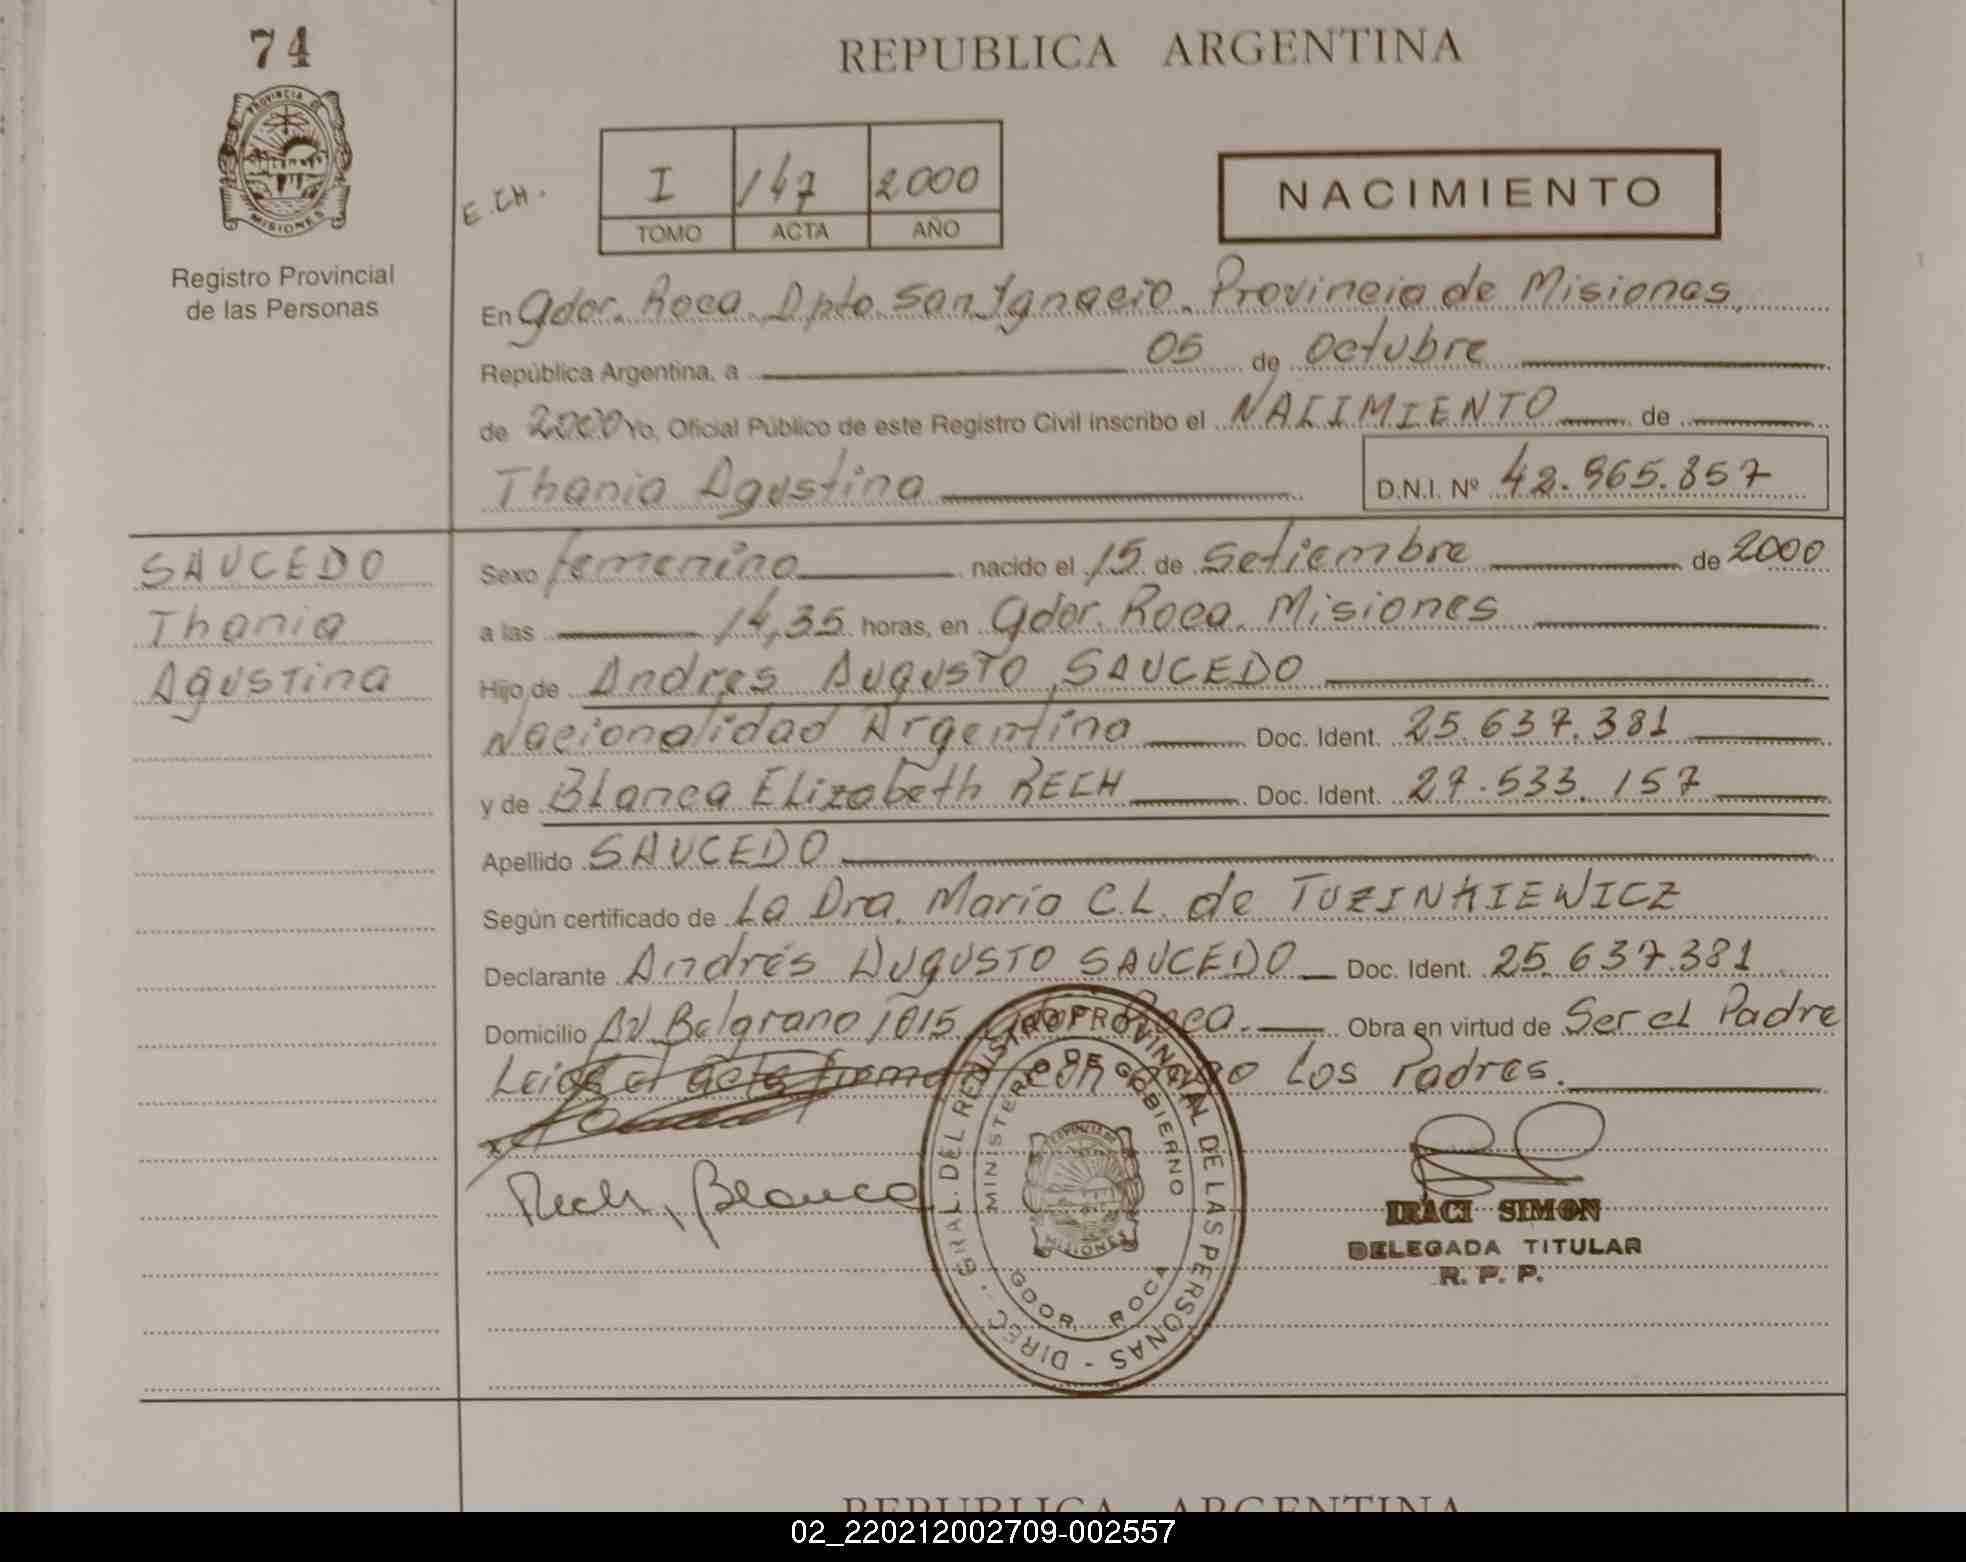 74
REPUBLICA ARGENTINA
PROVINCIA DE
MISIONES
Registro Provincial
de las Personas
E.CH.
I 147 2000
TOMO ACTA AÑO
NACIMIENTO
En Gdor. Roca. Dpto. San Ignacio. Provincia de Misiones,
República Argentina, a 05 de Octubre
de 2000 Yo, Oficial Público de este Registro Civil inscribo el NACIMIENTO de
Thania Agustina D.N.I. Nº 42.965.857
SAUCEDO
Thania
Agustina
Sexo femenino nacido el 15 de Setiembre de 2000
a las 14,35 horas, en Gdor. Roca. Misiones
Hijo de Andres Augusto SAUCEDO
Nacionalidad Argentina Doc. Ident. 25.637.381
y de Blanca Elizabeth RECH Doc. Ident. 27.533.157
Apellido SAUCEDO
Según certificado de La Dra. María C.L. de TUZINKIEWICZ
Declarante Andrés Augusto SAUCEDO Doc. Ident. 25.637.381
Domicilio Av Belgrano 1015 Gdor Roca. Obra en virtud de Ser el Padre
Leida el acta firma con Los Padres.
Rech, Blanca
DIREC. GRAL. DEL REGISTRO PROVINCIAL DE LAS PERSONAS
MINISTERIO DE GOBIERNO
PROVINCIA DE
MISIONES
GDOR. ROCA
IRACI SIMON
DELEGADA TITULAR
R. P. P.
REPUBLICA ARGENTINA
02_220212002709-002557